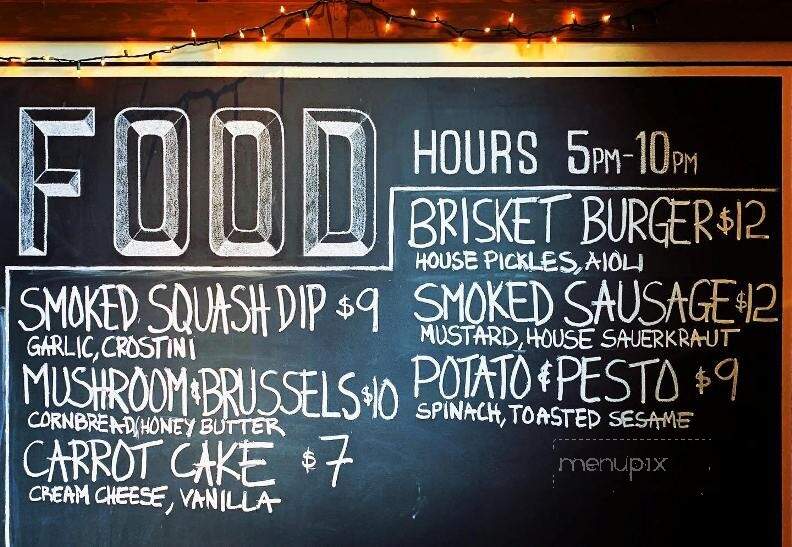 FOOD
HOURS 5PM-10PM
SMOKED SQUASH DIP $9
GARLIC, CROSTINI
MUSHROOM & BRUSSELS $10
CORNBREAD, HONEY BUTTER
CARROT CAKE $7
CREAM CHEESE, VANILLA
BRISKET BURGER $12
HOUSE PICKLES, AIOLI
SMOKED SAUSAGE $12
MUSTARD, HOUSE SAUERKRAUT
POTATO & PESTO $9
SPINACH, TOASTED SESAME
menupix